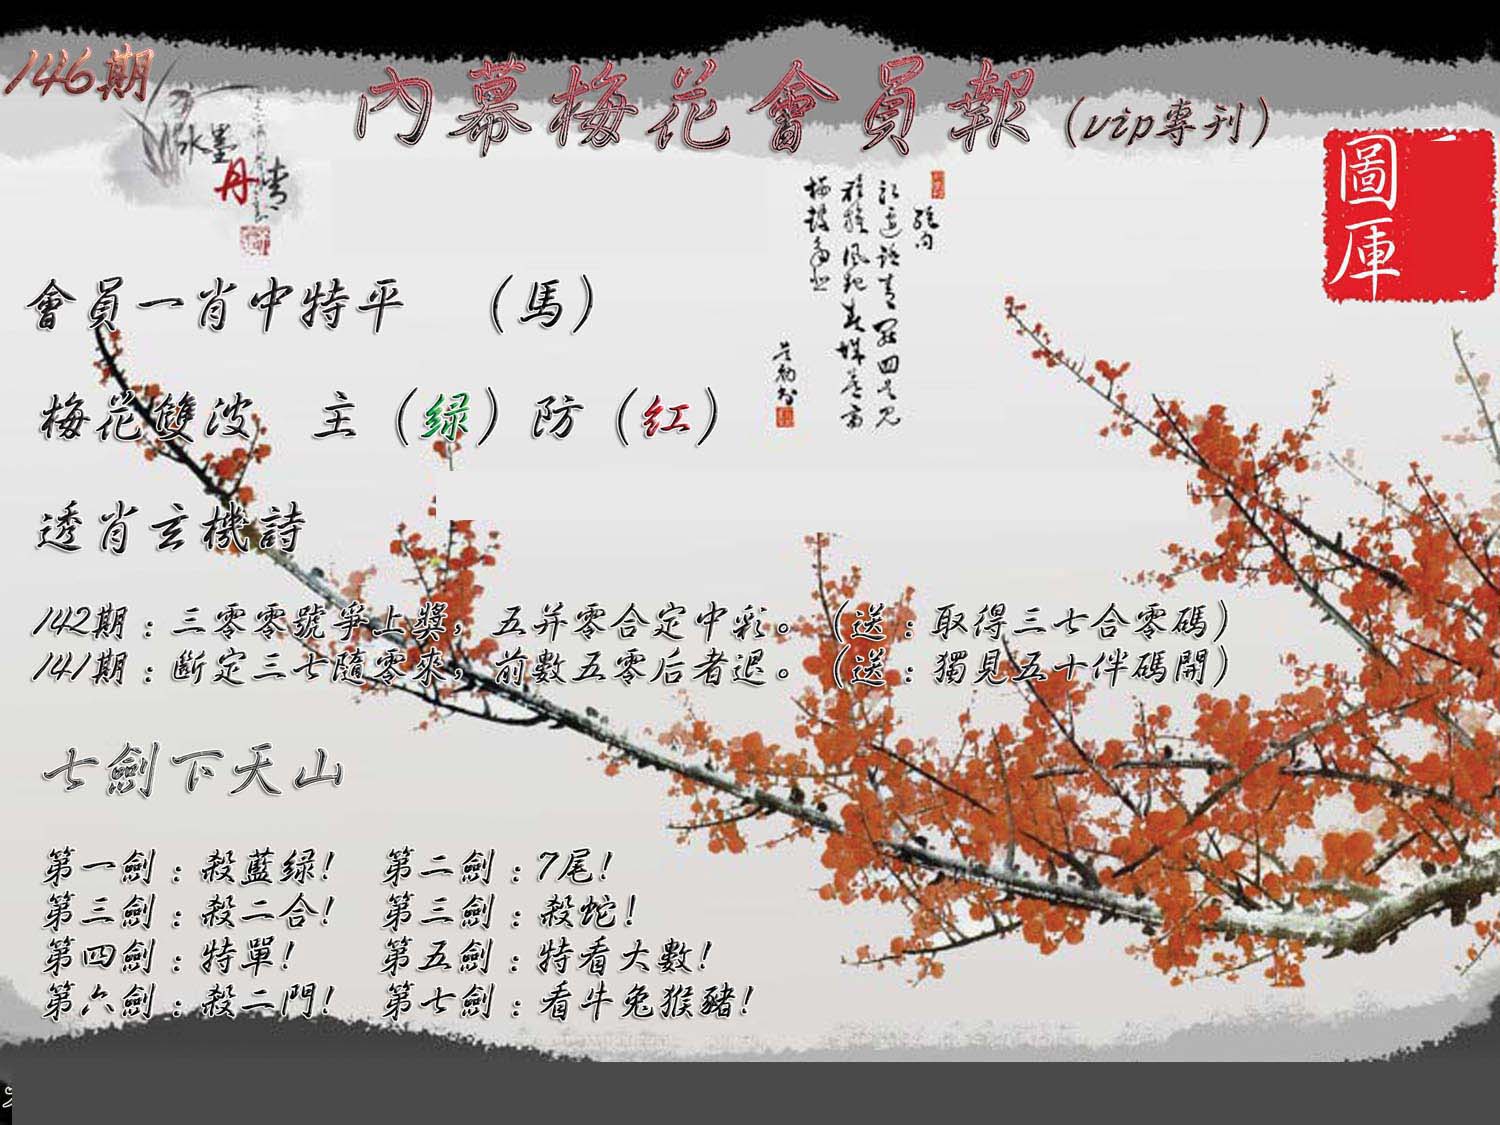 146期
內幕梅花會員報（vip專刊）
水墨
丹青
圖庫
會員一肖中特平　（馬）
梅花雙波　主（绿）防（红）
透肖玄機詩
142期：三零零號爭上獎，五并零合定中彩。（送：取得三七合零碼）
141期：斷定三七隨零來，前數五零后者退。（送：獨見五十伴碼開）
七劍下天山
第一劍：殺藍绿！　第二劍：7尾！
第三劍：殺二合！　第三劍：殺蛇！
第四劍：特單！　第五劍：特看大數！
第六劍：殺二門！　第七劍：看牛兔猴豬！